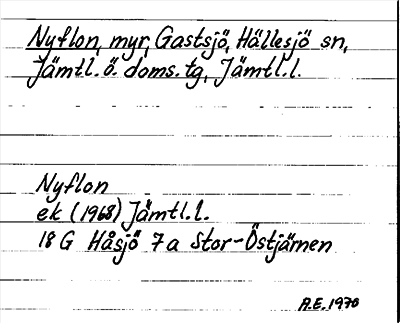 Nyflon, myr, Gastsjö, Hällesjö sn,
Jämtl. ö. doms. tg, Jämtl. l.
Nyflon
ek (1968) Jämtl. l.
18 G Håsjö 7a Stor-Östjärnen
A.E. 1970